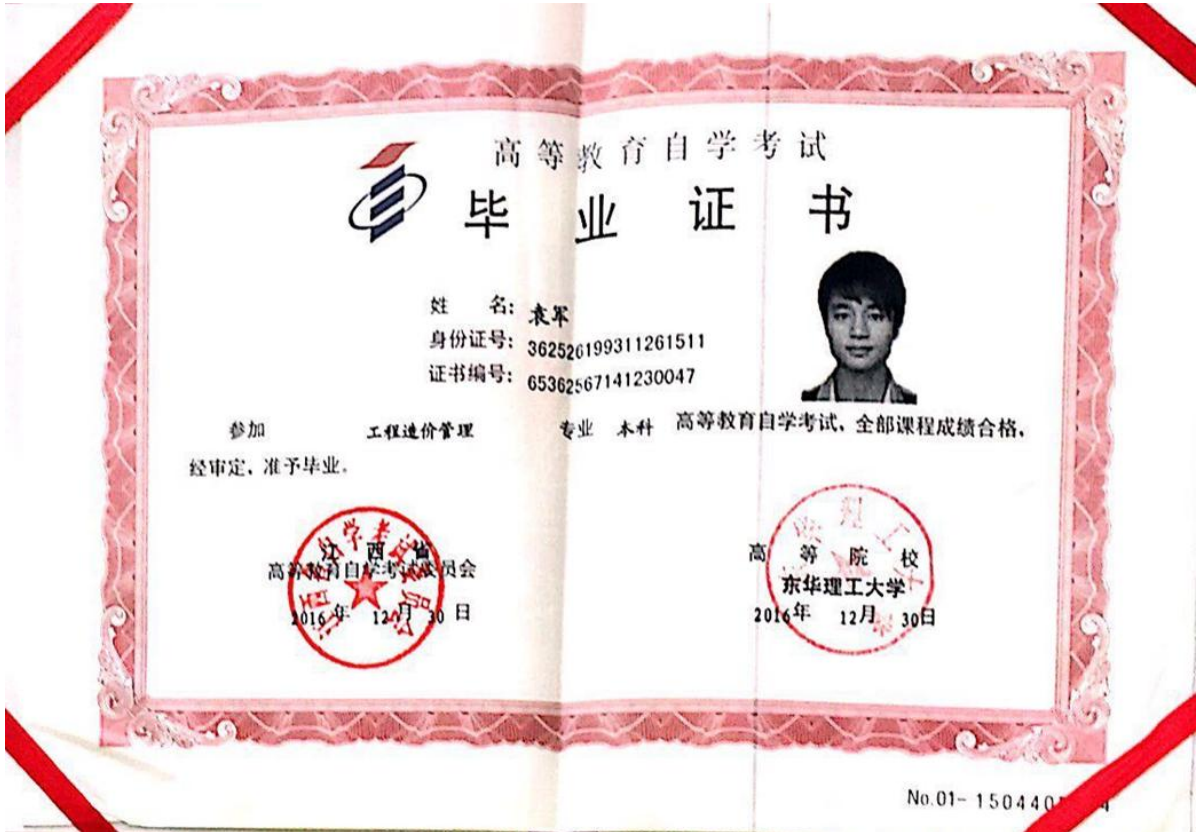 高等教育自学考试
毕业证书
姓 名: 袁军
身份证号: 362526199311261511
证书编号: 65362567141230047
参加 工程造价管理 专业 本科 高等教育自学考试，全部课程成绩合格，
经审定，准予毕业。
江西省
高等教育自学考试委员会
2016年 12月 30日
高等院校
东华理工大学
2016年 12月 30日
No.01-150440